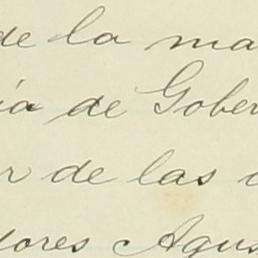 de la ma
ia de Gober
r de las
dores Agus